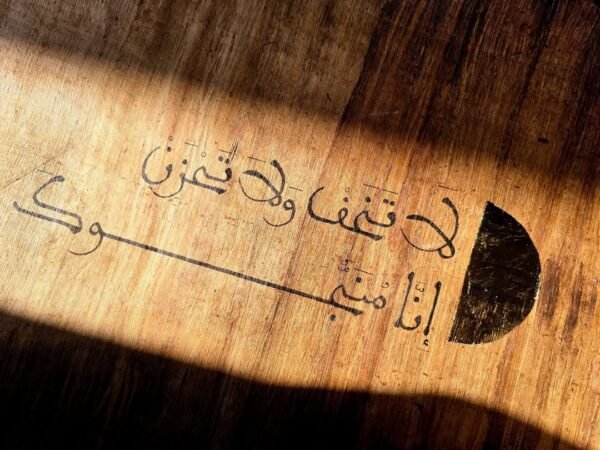 لَا تَخَفْ وَلَا تَحْزَنْ
إِنَّا مُنَجُّوكَ